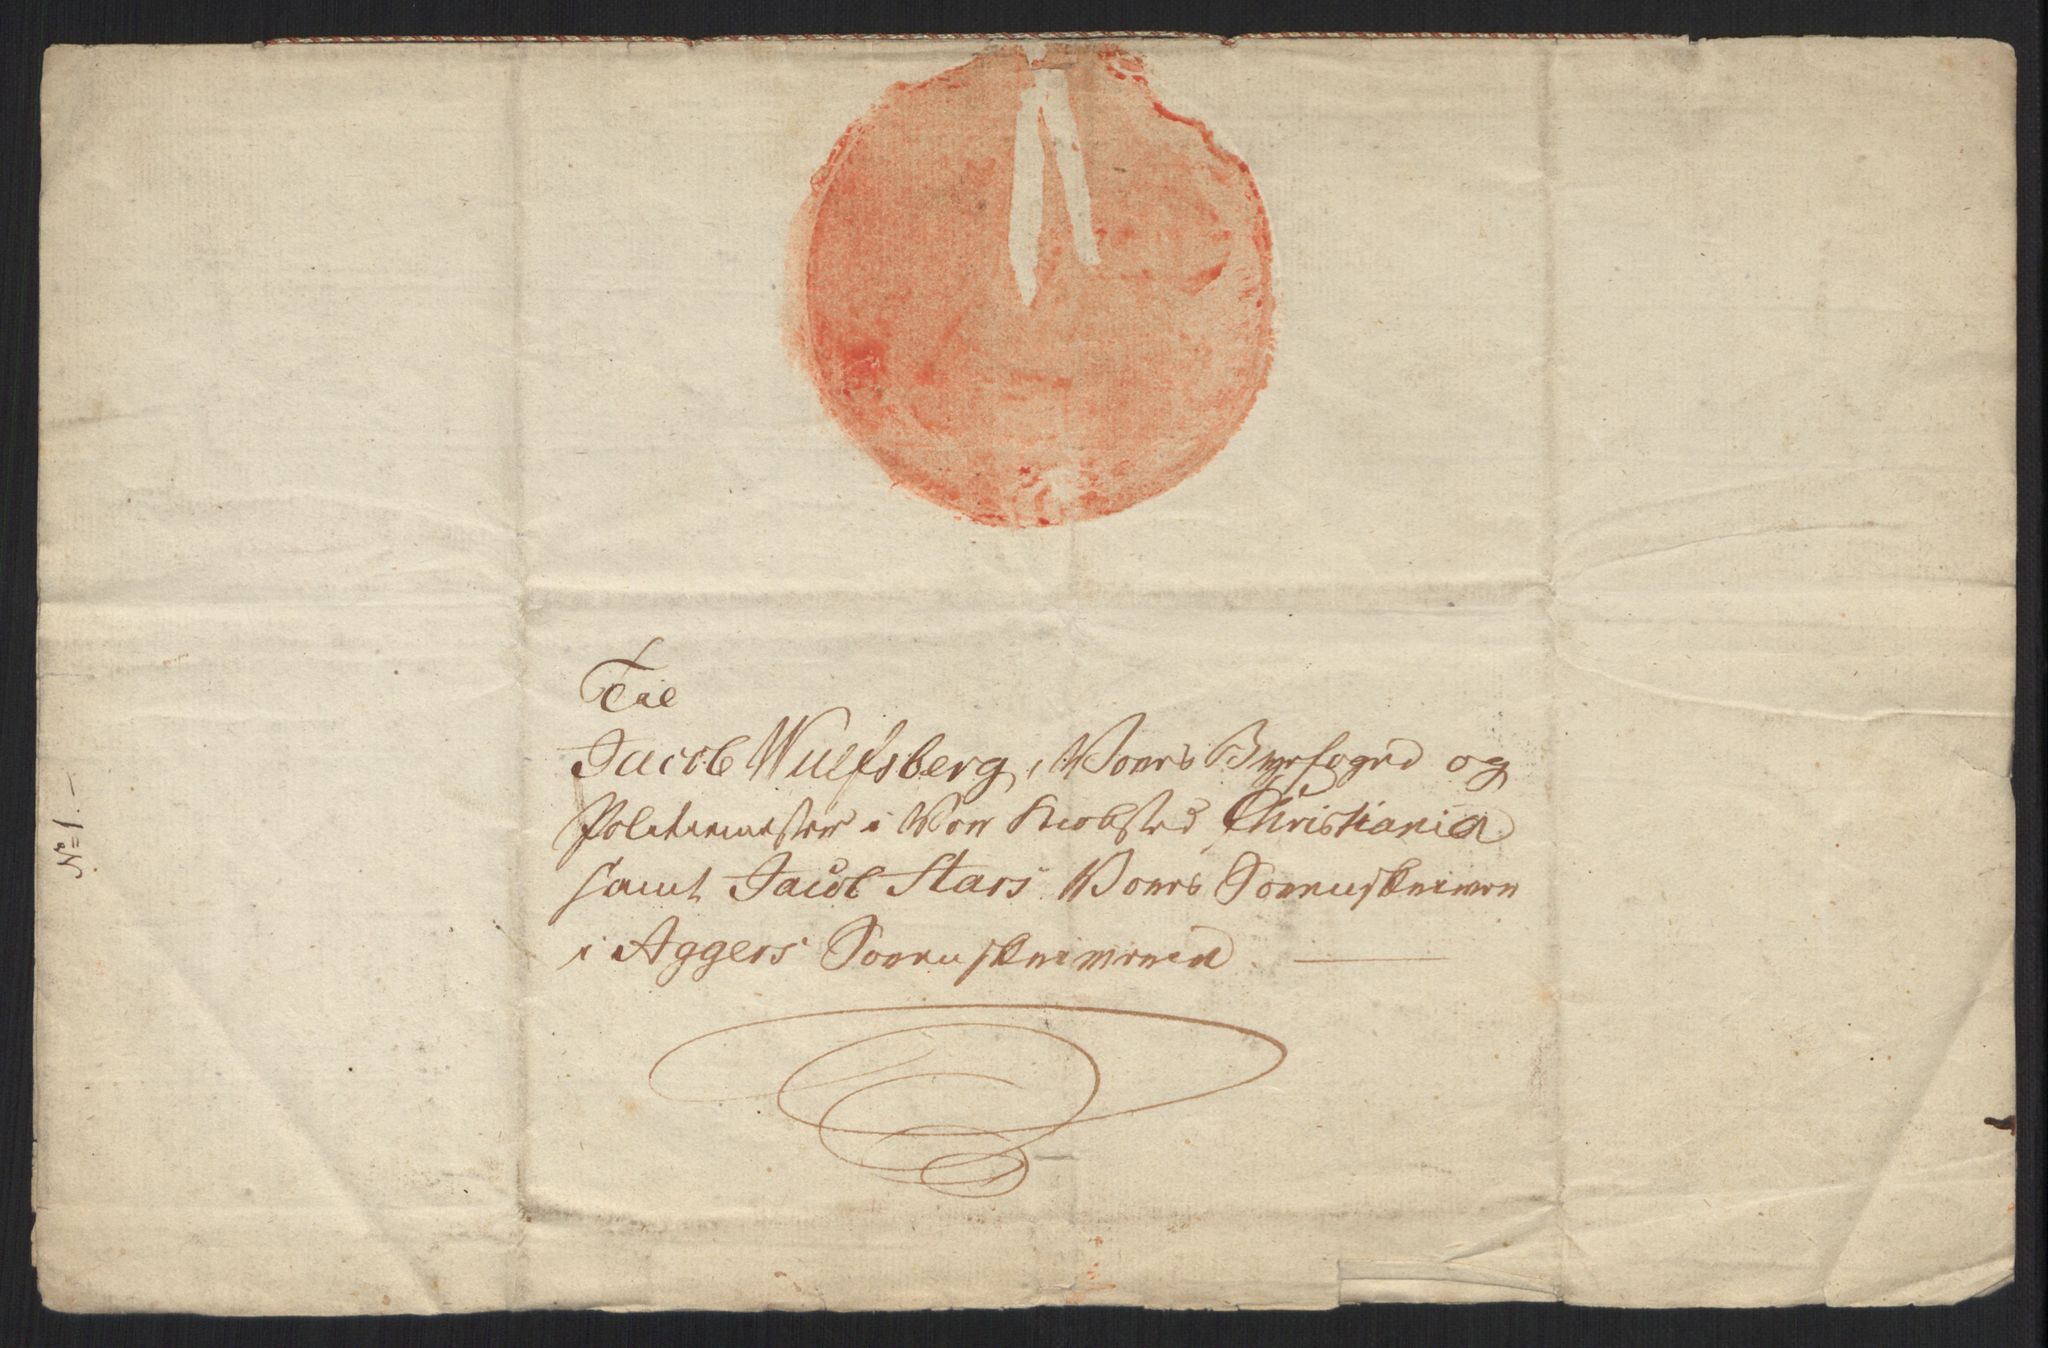 Til
Jacob Wulfsberg, Voers Byefoged og
Politiemester i Vor Kiøbsted Christiania
samt Jacob Stars Voers Sorenskriver
i Aggers Sorenskriverie
No 1.